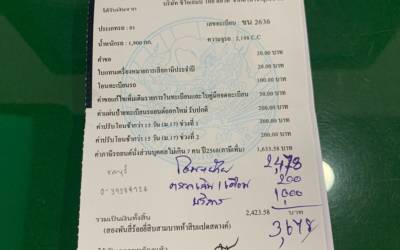 ได้รับเงินจาก บริษัท
ประเภทรถ : 01 เลขทะเบียน : ขน 2636
น้ำหนักรถ : 1,900 กก. ความจุรถ : 2,198 C.C
ค่าขอ 20.00 บาท
ใบแทนเครื่องหมายการเสียภาษีประจำปี 20.00 บาท
โอนทะเบียนรถ 100.00 บาท
ค่าขอแก้ไขเพิ่มเติมรายการในทะเบียนและใบคู่มือจดทะเบียน 50.00 บาท
ค่าแผ่นป้ายทะเบียนรถยนต์ออกใหม่ รับปกติ 200.00 บาท
ค่าปรับโอนช้ากว่า 15 วัน (ม.17) ช่วงที่ 1 200.00 บาท
ค่าปรับโอนช้ากว่า 15 วัน (ม.17) ช่วงที่ 2 200.00 บาท
ค่าภาษีรถยนต์นั่งส่วนบุคคลไม่เกิน 7 คน ปี2568 1,633.58 บาท
2,478
200
บริการ 1,000
รวมเป็นเงินทั้งสิ้น 2,423.58 บาท
(สองพันสี่ร้อยยี่สิบสามบาทห้าสิบแปดสตางค์)
3678